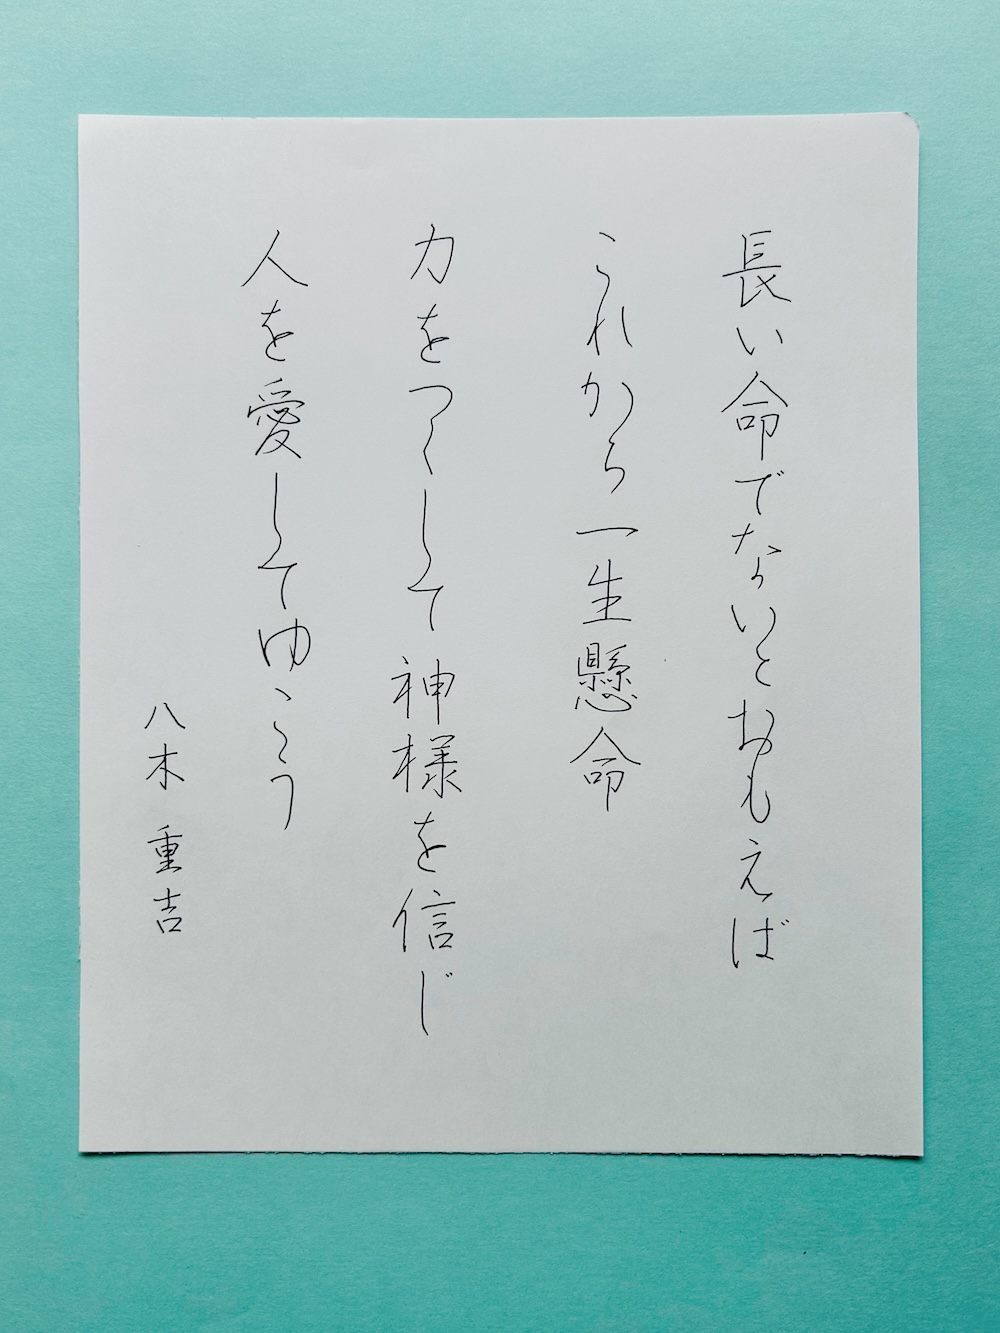 長い命でないとおもえば
これから一生懸命
力をつくして神様を信じ
人を愛してゆこう
八木 重吉